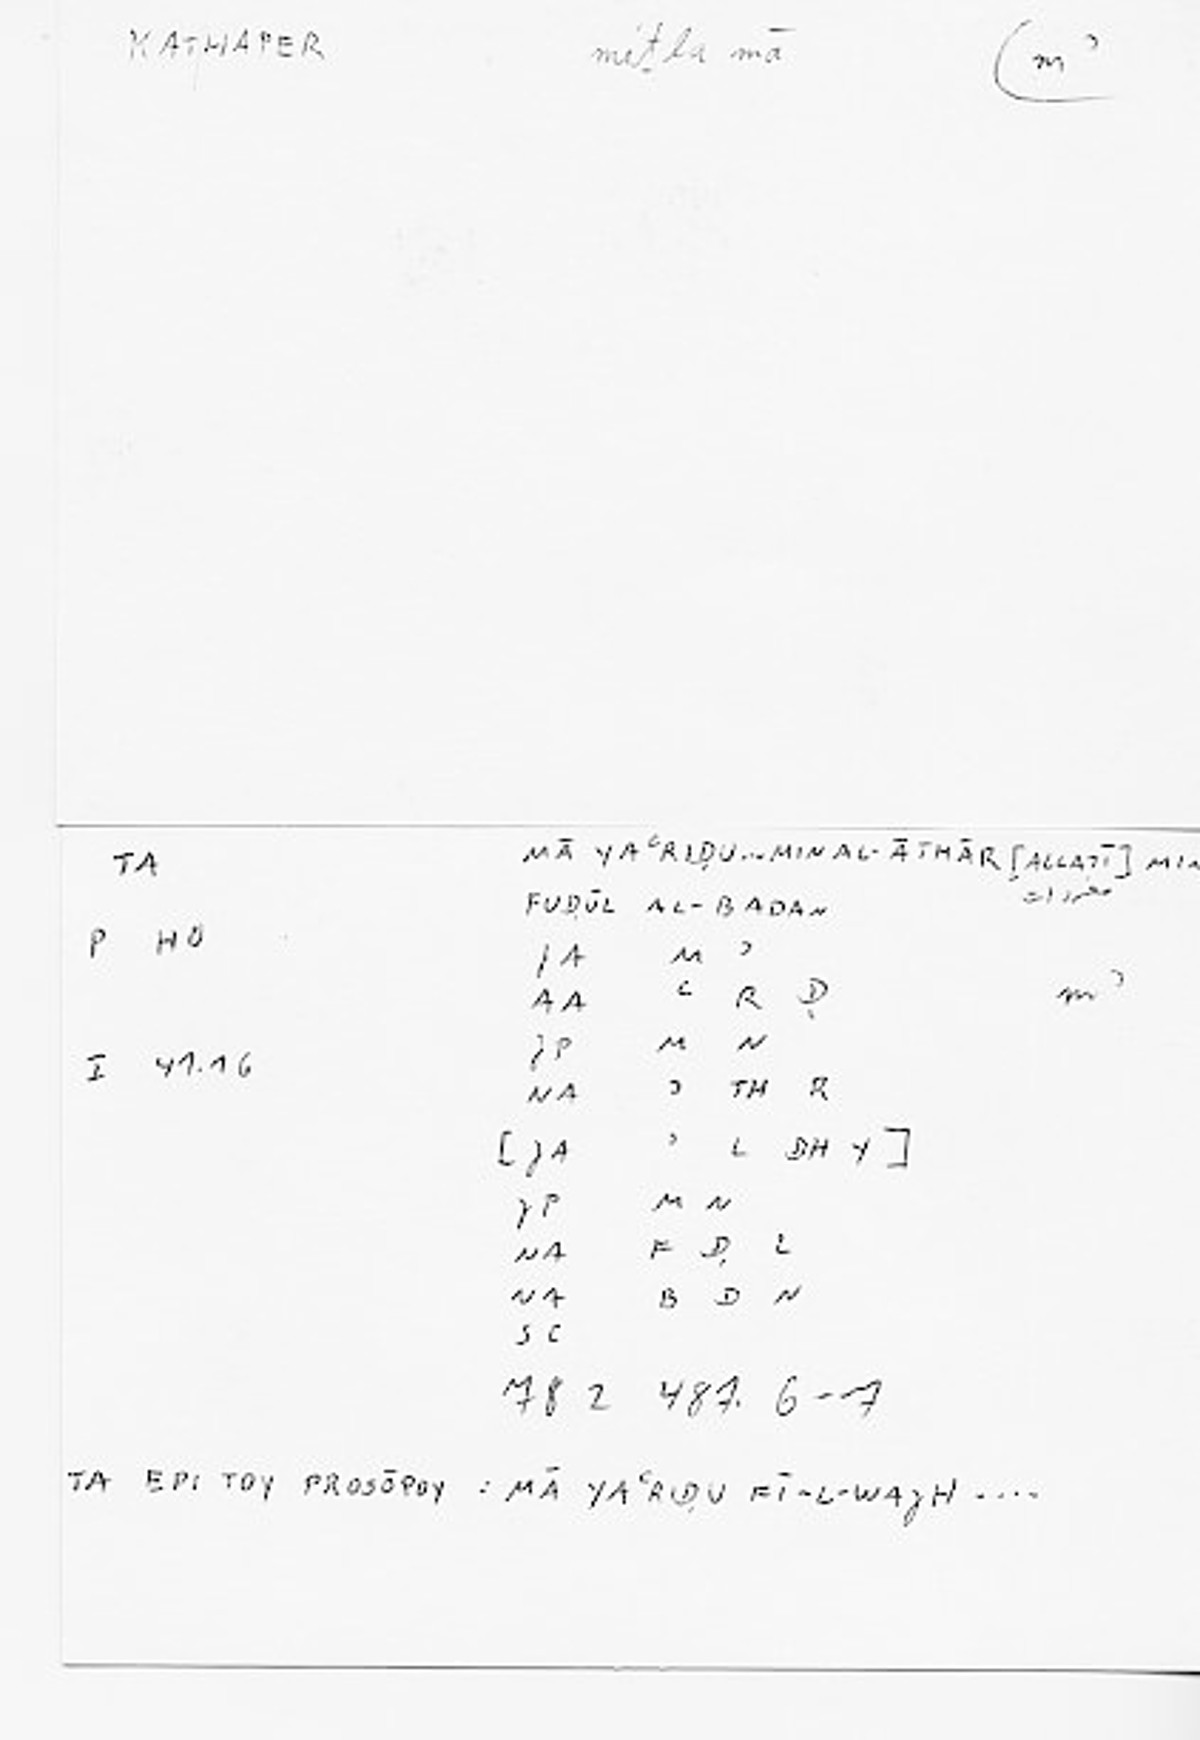 KATHAPER mitla mā (m ʾ
TA MĀ YAʿRIḌU... MIN AL-ĀTHĀR [ALLATĪ] MIN
FUḌŪL AL-BADAN
P HO
JA M ʾ
AA ʿ R Ḍ m ʾ
JP M N
I 41.16
NA ʾ TH R
[JA ʾ L DH Y]
JP M N
NA F Ḍ L
NA B D N
SC
782 487. 6-7
TA EPI TOY PROSŌPOY : MĀ YAʿRIḌU FĪ-L-WAJH ....